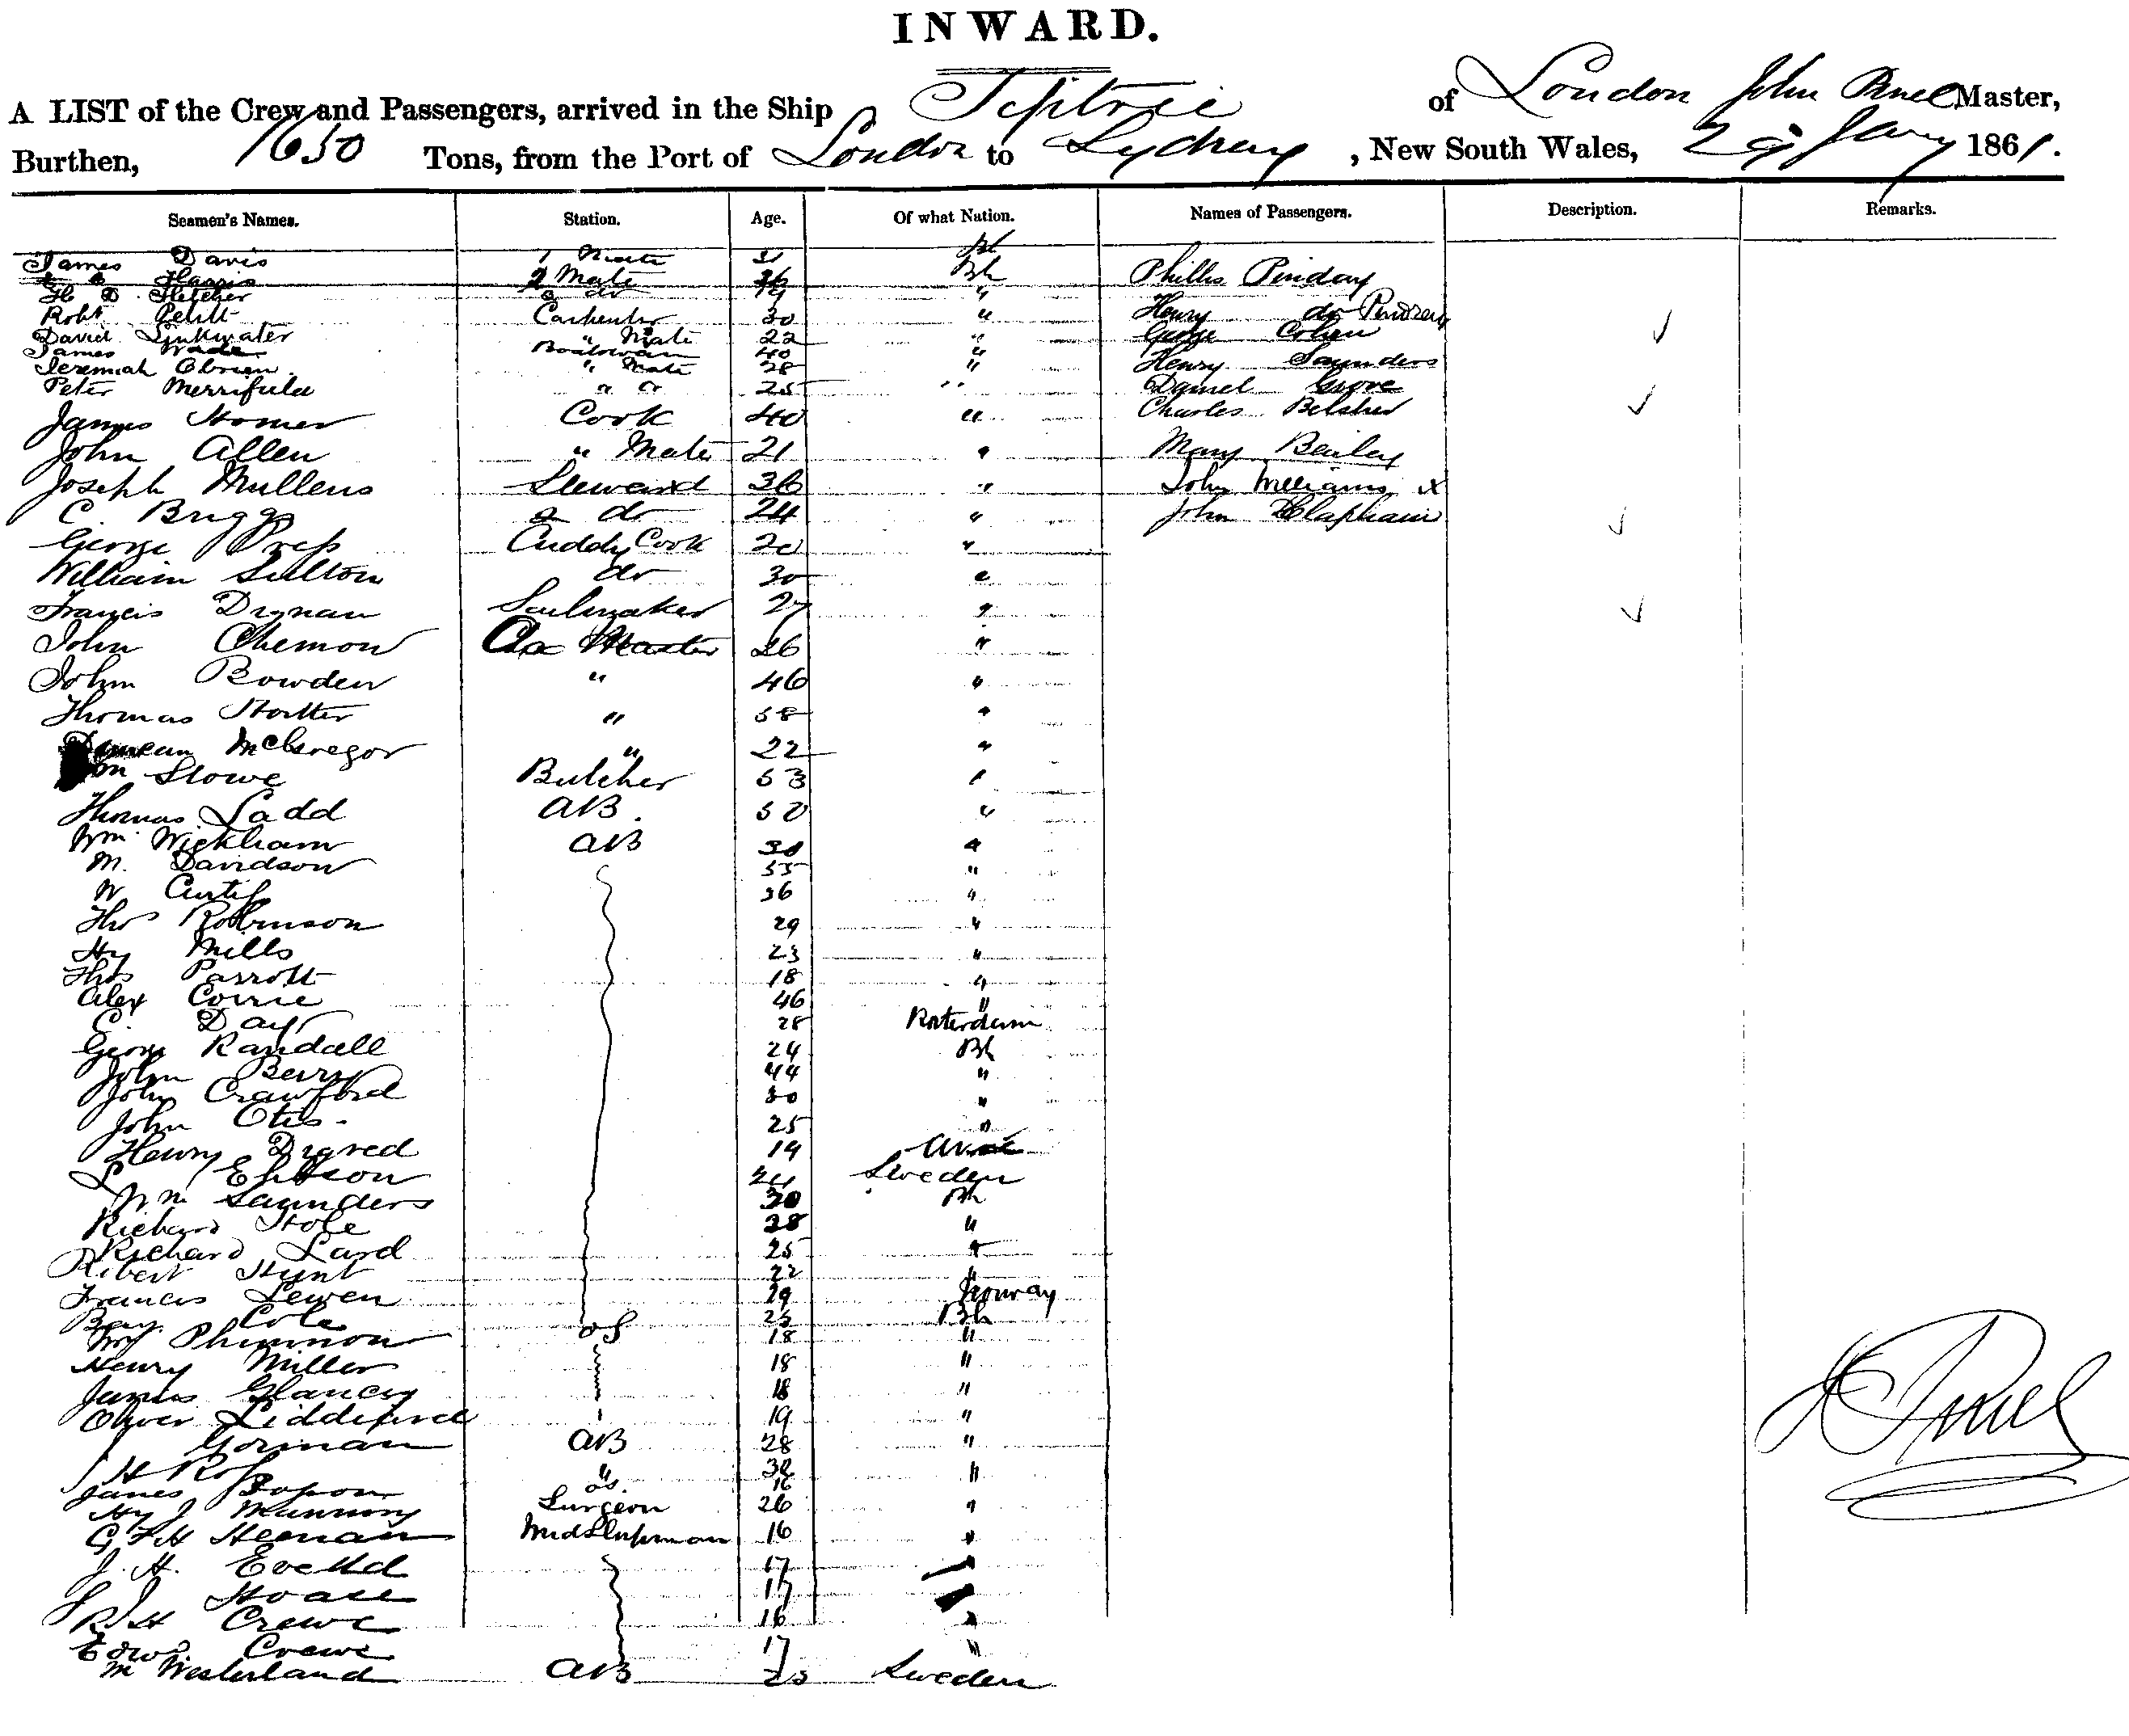 INWARD.
A LIST of the Crew and Passengers, arrived in the Ship of London John Master,
Burthen, 1650 Tons, from the Port of London to Sydney, New South Wales, 29 Jany 1861.
Seamen's Names. Station. Age. Of what Nation. Names of Passengers. Description. Remarks.
James Davis 1 Mate 31 Bh
Harris 2 Mate 26 Bh Phillis Pinday
H D Fletcher 3 do 19 "
Robt Petitt Carpenter 30 " Henry do
David Linkwater " Mate 22 " George Cohen
James Wade Boatswain 40 " Henry Saunders
Jeremiah Obrien " Mate 28 " Daniel Grove
Peter Merrifield " " 25 " Charles Belsher
James Homer Cook 40 "
John Allen " Mate 21 " Mary Bailey
Joseph Mullens Steward 36 " John Williams X
C. Briggs 2 do 24 " John Clapham
George Cuddy Cook 20 "
William Sulton do 30 "
Francis Dignan Sailmaker 27 "
John Chemon Qa Master 26 "
John Bowden " 46 "
Thomas " 58 "
Duncan McGregor " 22 "
Wm Stowe Butcher 53 "
Thomas Ladd AB. 50 "
Wm Wickham AB 30 "
M. Davidson 35 "
W Curtis 36 "
Thos Robinson 29 "
Hy Mills 23 "
Thos Parrott 18 "
Alex Corrie 46 "
C. Day 28 Roterdam
George Randall 24 Bh
John Berry 44 "
John Crawford 30 "
John Otis. 25 "
Henry 19
24 Sweden
Wm Saunders 30 Bh
Richard Hole 28 "
Richard Lard 25 "
Robert Hunt 22 "
Francis Lewen 29 Norway
Benj. Cole 23 Bh
Wm Phinnon OS 18 "
Henry Miller 18 "
James Glancey 18 "
Oliver 19 "
Gorman AB 28 "
H Ross " 32 "
James OS. 16
Hy J Mannory Surgeon 26 "
G F H Heenan MidShipman 16 "
J. H. 17 "
Hoare 17 "
R H Crewe 16 "
Edwd. Crewe 17 "
M Westerland AB 23 Sweden